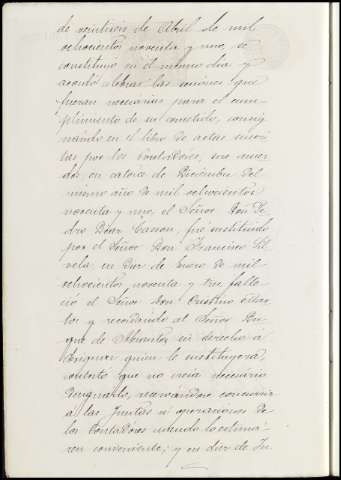 de veintiseis de Abril de mil
ochocientos noventa y uno, se
constituyó en el mismo dia y
acordó celebrar las sesiones que
fueran necesarias para el cum-
plimiento de su cometido, consig-
nando en el libro de actas suscri-
tas por los Contadores, sus acuer-
dos; en catorce de Diciembre del
mismo año de mil ochocientos
noventa y uno, el Señor Don Pe-
dro Díaz fué sustituido
por el Señor Don Francisco Sil-
vela; en diez de Enero de mil
ochocientos noventa y tres falle-
ció el Señor Don
y recordando al Señor Du-
que de Abrantes su derecho á
designar quien le sustituyera
contestó que no creia necesario
designarlo, reservándose concurrir
á las Juntas ú operaciones de
los Contadores cuando lo estima-
ren conveniente; y en diez de Ju-